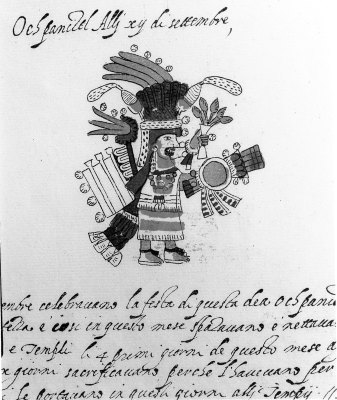 Ochpaniztel Alli xy di settembre,
embre celebravano la festa di questa dea Ochpaniz
tella e cosi in questo mese spazavano e nettava
e Templi li 4 primi giorni de questo mese a
giorni sacrificavano perche l'havevano per
le portavano in questi giorni alli Tempij